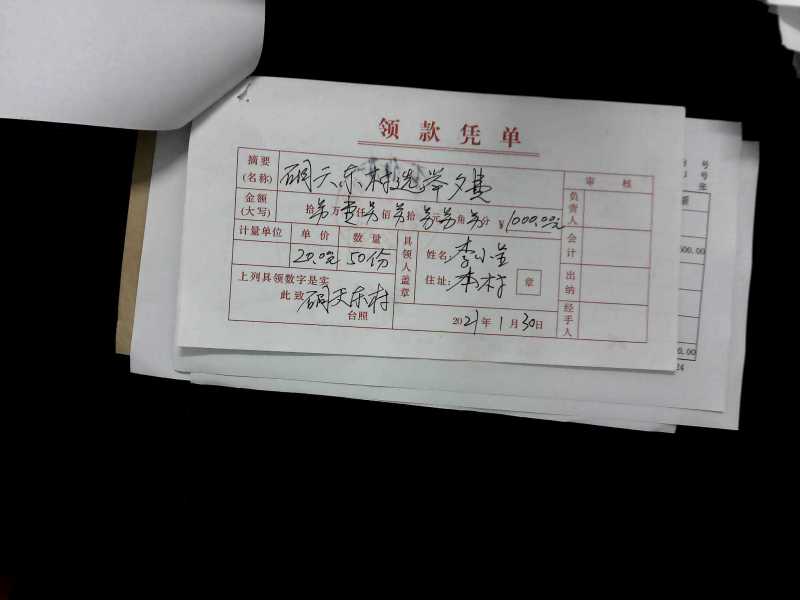 领款凭单
摘要 审核
(名称) 天东村选举夕费
金额
(大写) 拾 万壹仟 佰 拾 元 角 分 ¥1000.00元
负责人
计量单位 单价 数量
20.0元 50份
具领人盖章
姓名: 李小
住址: 本村 章
会计
出纳
经手人
上列具领数字是实
此致 天东村
台照
2021年1月30日
号
号
张
额
500.00
0.00
24